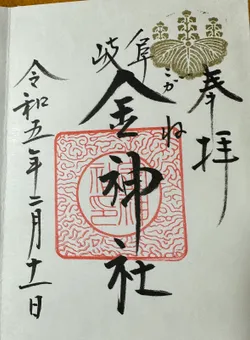 奉拝
岐阜
こがね
金神社
令和五年二月十一日